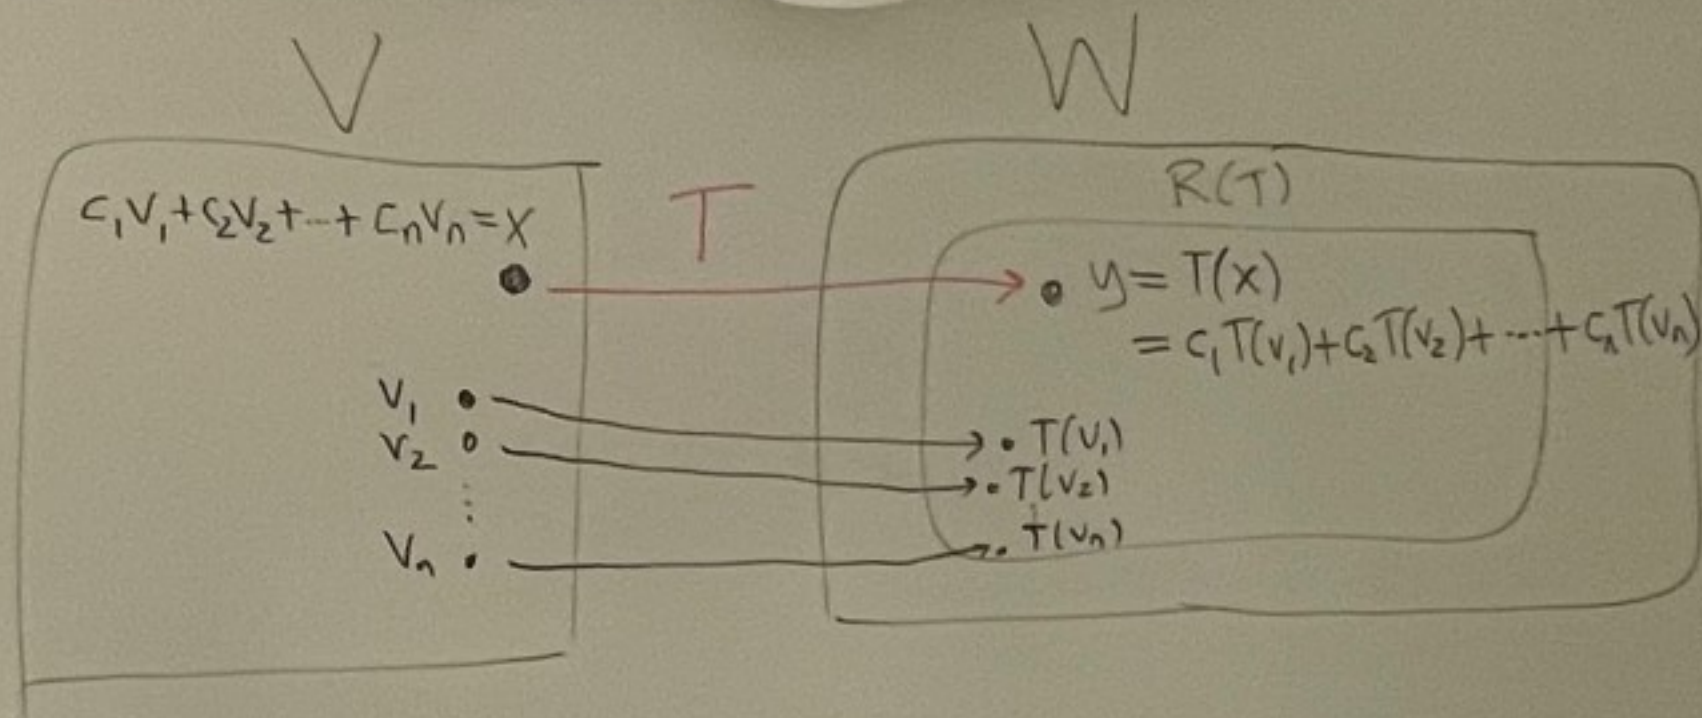 V
W
R(T)
C₁V₁+C₂V₂+...+ CₙVₙ=X
T
y= T(x)
= C₁T(V₁)+C₂T(V₂)+...+CₙT(Vₙ)
V₁
T(V₁)
V₂
T(V₂)
⋮
Vₙ
T(Vₙ)